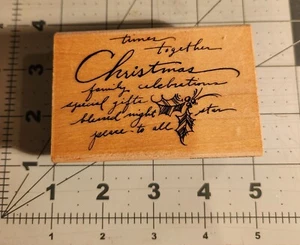 times
together
Christmas
family celebrations
special gifts
blessed night star
peace to all
4
3
2
1
1 2 3 4 5
1 2 3 4 5